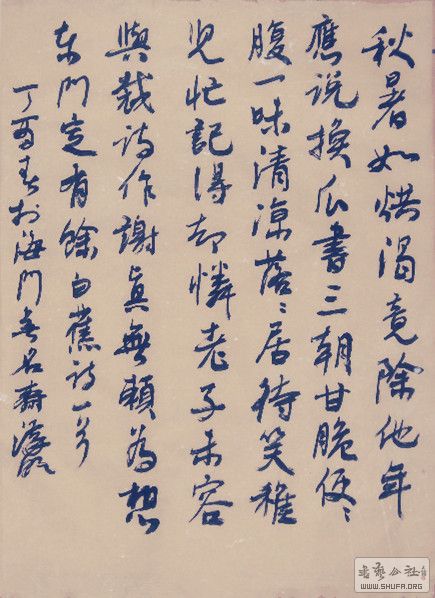 秋暑如烘渴竟除他年
應说換瓜書三朝甘脆便〻
腹一味清凉落〻居待笑稚
兒忙記得却憐老子未容
與裁诗作謝真無賴為想
东门定有餘白蕉诗一首
丁酉春於海门無名齋
書藝公社
WWW.SHUFA.ORG